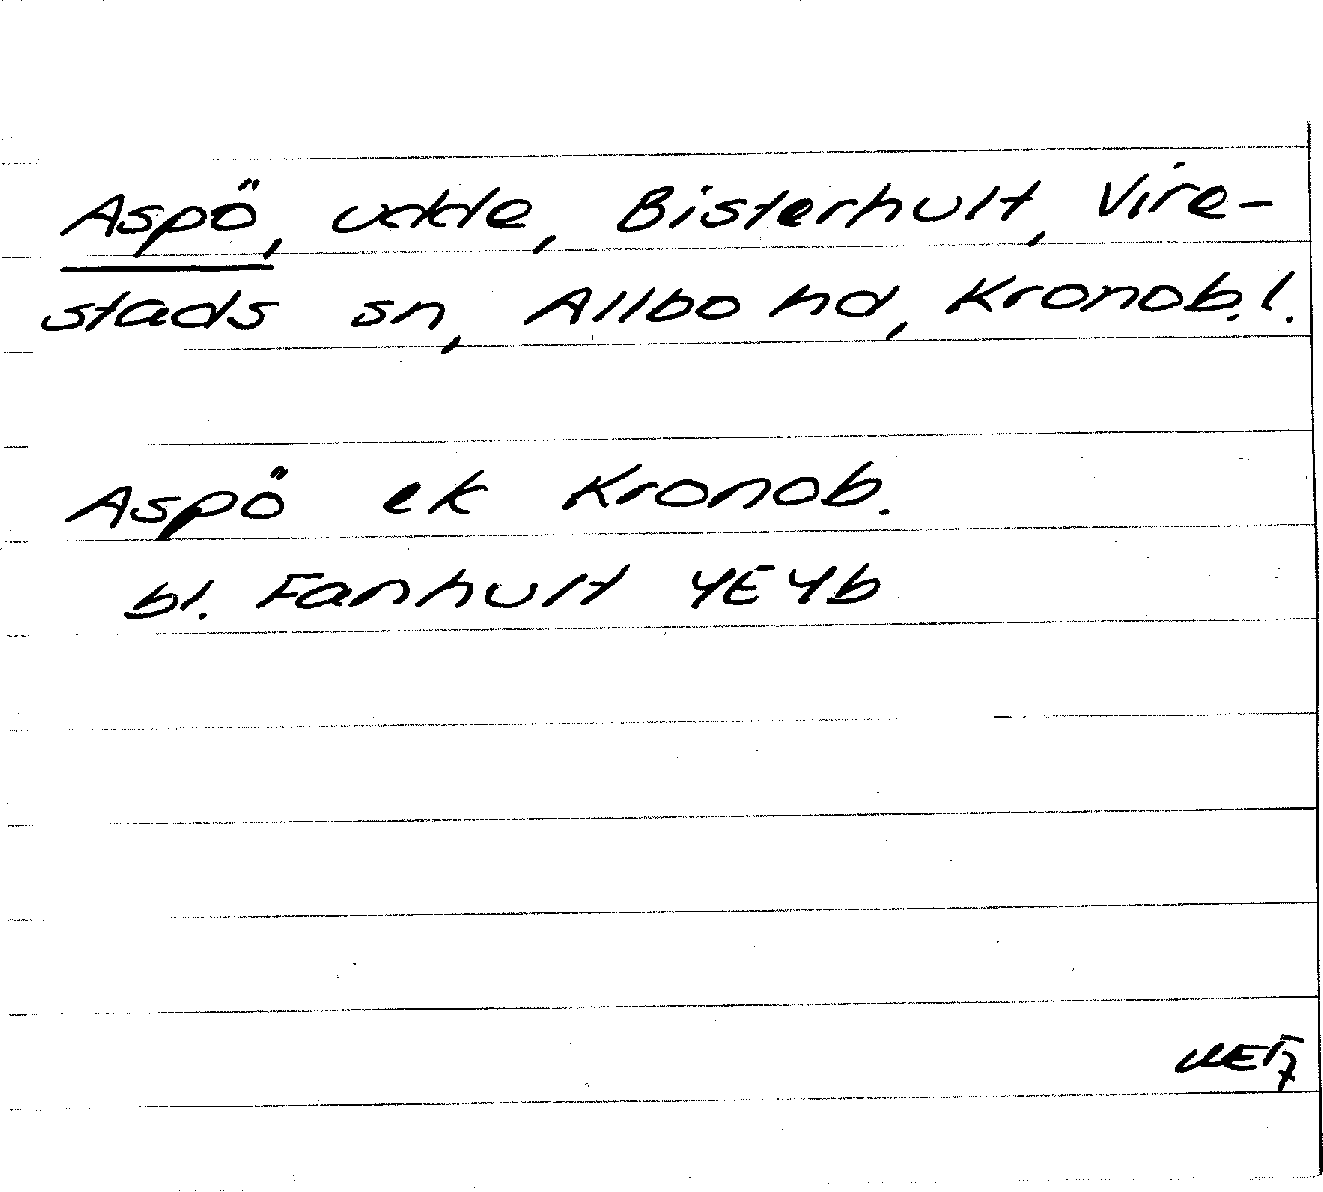 Aspö, udde, Bisterhult, Vire-
stads sn, Allbo hd, Kronob. l.
Aspö ek Kronob.
bl. Fanhult 4E4b